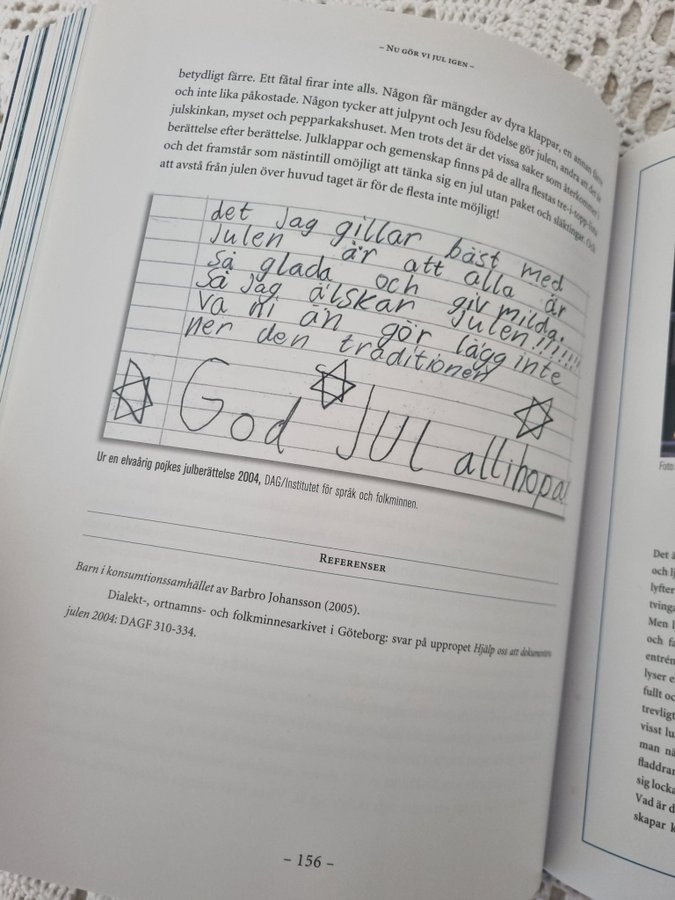 – Nu gör vi jul igen –
betydligt färre. Ett fåtal firar inte alls. Någon får mängder av dyra klappar, en annan färre
och inte lika påkostade. Någon tycker att julpynt och Jesu födelse gör julen, andra att det är
julskinkan, myset och pepparkakshuset. Men trots det är det vissa saker som återkommer i
berättelse efter berättelse. Julklappar och gemenskap finns på de allra flestas tre-i-topp-lista
och det framstår som nästintill omöjligt att tänka sig en jul utan paket och släktingar. Och
att avstå från julen över huvud taget är för de flesta inte möjligt!
det jag gillar bäst med
Julen är att alla är
så glada och givmilda.
Så jag älskar julen!!!!!!
va ni än gör lägg inte
ner den traditionen
God Jul allihopa!
Ur en elvaårig pojkes julberättelse 2004, DAG/Institutet för språk och folkminnen.
Referenser
Barn i konsumtionssamhället av Barbro Johansson (2005).
Dialekt-, ortnamns- och folkminnesarkivet i Göteborg: svar på uppropet Hjälp oss att dokumentera
julen 2004: DAGF 310-334.
– 156 –
Foto
Det ä
och lj
lyfter
tvinga
Men l
och fa
entrén
lyser e
fullt oc
trevligt
visst lu
man nä
fladdran
sig locka
Vad är d
skapar k